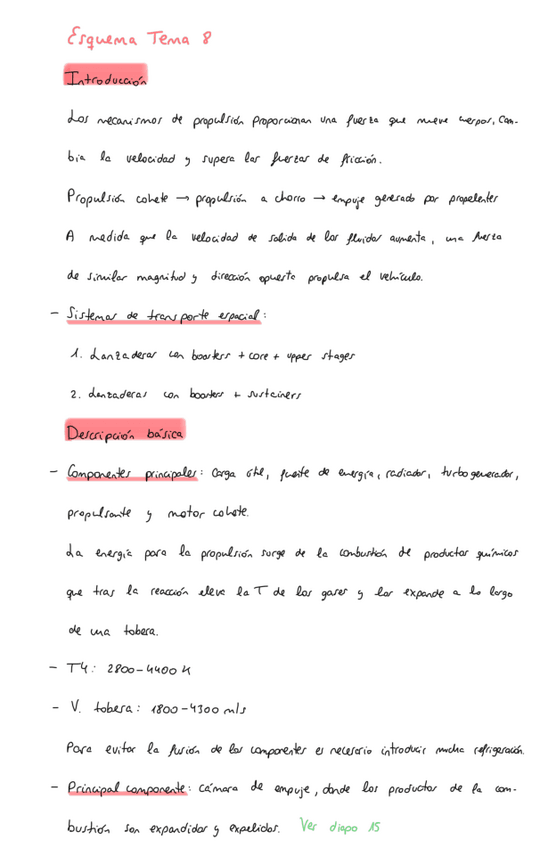 Esquema Tema 8
Introducción
Los mecanismos de propulsión proporcionan una fuerza que mueve cuerpos, cam-
bia la velocidad y supera las fuerzas de fricción.
Propulsión cohete → propulsión a chorro → empuje generado por propelentes
A medida que la velocidad de salida de los fluidos aumenta, una fuerza
de similar magnitud y dirección opuesta propulsa el vehículo.
- Sistemas de transporte espacial:
1. Lanzaderas con boosters + core + upper stages
2. Lanzaderas con boosters + sustainers
Descripción básica
- Componentes principales: Carga útil, fuente de energía, radiador, turbogenerador,
propulsante y motor cohete.
La energía para la propulsión surge de la combustión de productos químicos
que tras la reacción eleva la T de los gases y los expande a lo largo
de una tobera.
- T4: 2800-4400 K
- V. tobera: 1800-4300 m/s
Para evitar la fusión de los componentes es necesario introducir mucha refrigeración.
- Principal componente: cámara de empuje, donde los productos de la com-
bustión son expandidos y expelidos. Ver diapo 15